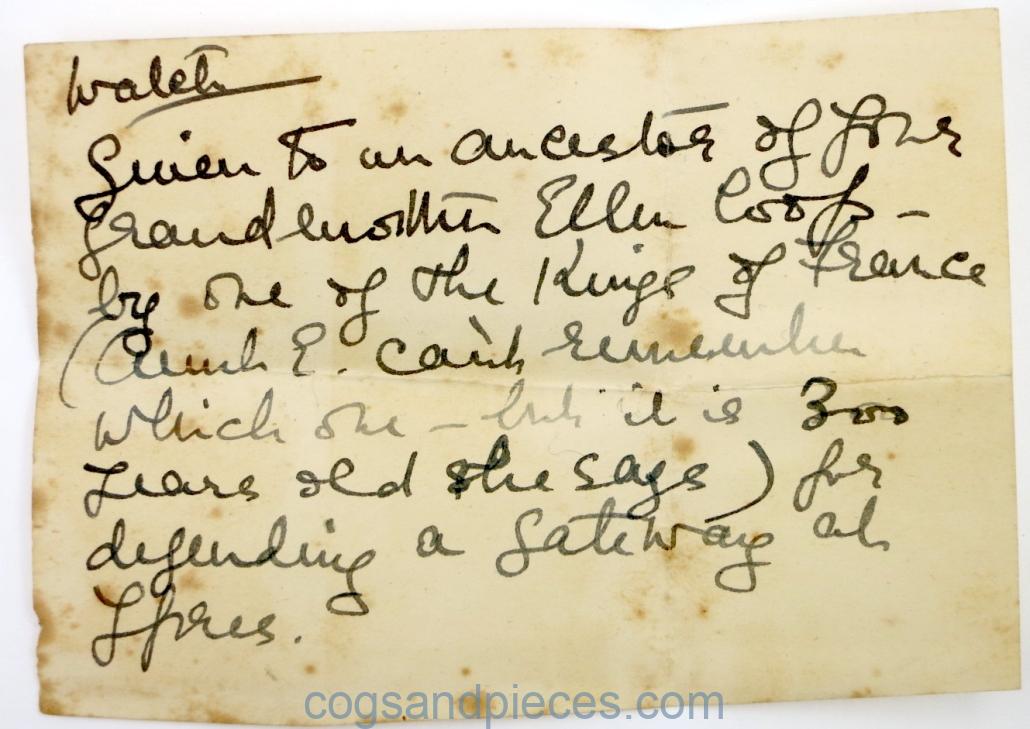 Watch
Given to an ancestor of your
grandmother Ellen Coops -
by one of the Kings of France
(Aunt E. can't remember
which one - but it is 300
years old she says) for
defending a gateway at
Ypres.
cogsandpieces.com